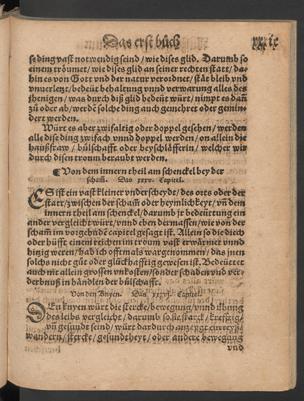 Das erst büch
se ding vast notwendig seind / wie dises glid. Darumb so
einem tröumet / wie dises glid an seiner rechten statt / da-
hin es von Gott vnd der natur verordnet / stät bleib vnd
vnuerletzt / bedeüt behaltung vnnd verwarung alles des
jhenigen / was durch diß glid bedeüt würt / nimpt es dañ
zů oder ab / werdē solche ding auch gemehret oder gemin-
dert werden.
Würt es aber zwifaltig oder doppel gesehen / werden
alle dise ding zwifach vnnd doppel werden / on allein die
haußfraw / hülschafft oder beyschläfferin / welcher wir
durch disen tronm beraubt werden.
Von dem innern theil am schenckel bey der
scham. Das xxxv. Capitel.
ES ist ein vast kleiner vnderscheyd / des orts oder der
statt / zwischen der scham oder heymlichkeyt / vñ dem
innern theil am schenckel / darum̃ jr bedeüttung ein
ander vergleicht würt / vnnd eben dermassen / wie von der
scham im vorgehndē capitel gesagt ist. Allein so die diech
oder hüfft einem reichen im troum vast erwärmet vnnd
hitzig weren / hab ich offtmals wargenommen / das jnen
solchs nicht gůt oder glückhafftig gewesen ist. Bedeütet
auch nit allein grossen vnkosten / sonder schaden vnd ver-
derbnuß in händlen der bülschafft.
Von den Knyen. Das xxxvj. Capitel.
DEn knyen würt die stercke / bewegung / vnnd übung
des leibs vergleicht / darumb so sie starck / krefftig /
vñ gesund seind / würt dardurch anzeygt ein reyß /
wandern / stercke / gesundtheyt / oder andere bewegung
vnd